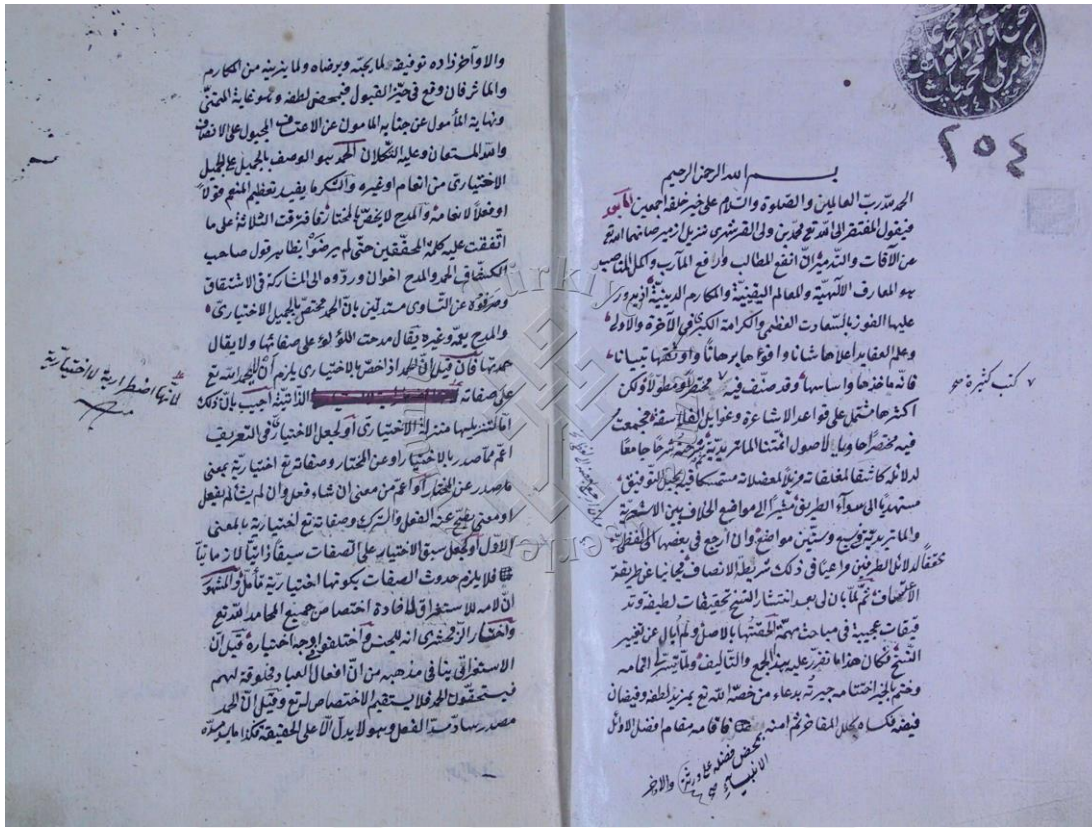 ٢٥٤
بسم الله الرحمن الرحيم
الحمد لله رب العالمين والصلوة والسلام على خير خلقه اجمعين اما بعد
فيقول المفتقر الى الله تع محمد بن ولى القرشهرى نزيل ازمير صانها الله تع
عن الآفات والتدمير ان انفع المطالب وارفع المآرب واكمل المناصب
هو المعارف الالهية والمعالم اليقينية والمكارم الدينية اذ يدور
عليها الفوز بالسعادت العظمى والكرامة الكبرى في الآخرة والاولى
وعلم العقايد اعلاها شانا واقوىها برهانا واوثقها تبيانا
فانه ماخذها واساسها وقد صنف فيه مختصرا ومطولا ولكن
كتب كثيرة صح
اكثرها مشتمل على قواعد الاشاعرة وغوايل الفلاسفة فجمعت
فيه مختصرا حاويا لاصول ائمتنا الماتريدية وشرحته شرحا جامعا
لدلائله كاشفا لمغلقاته مزيلا لمعضلاته مستمسكا فيه بحبل التوفيق
مستهديا الى سوآء الطريق مشيرا الى مواضع الخلاف بين الاشعرية
والماتريدية وهى سبع وستين مواضع وان ارجع في بعضها الى اللفظى
محققا لدلائل الطرفين وراعيا في ذلك شريطة الانصاف مجانبا عن طريقة
الاعتساف ثم لما بان لى بعد انتشار النسخ تحقيقات لطيفة وتد
قيقات عجيبة في مباحث مهمة الحقتها بالاصل ولم ابال عن تغيير
النسخ فكان هذا ما تقرر عليه هذا الجمع والتاليف ولما تيسر اتمامه
وختم بالخير اختتامه حبرته بدعاء من خصه الله تع بمزيد لطفه وفيضان
فيضه فكساه بحلل المفاخر ثم امنه فاقامه مقام افضل الاوائل
بمحض فضله على ورثة
الانبياء صح
والاواخر
والاواخر زاده توفيقه لما يحبه ويرضاه ولما يزينه من المكارم
والمآثر فان وقع في حيز القبول فبمحض لطفه وهو غاية المتمنى
ونهاية المأمول عن جنابه المامون عن الاعتساف المجبول على الانصاف
والله المستعان وعليه التكلان الحمد هو الوصف بالجميل على الجميل
الاختيارى من انعام او غيره والشكر ما يفيد تعظيم المنعم قولا
او فعلا لانعامه والمدح لا يخص بالمختار فافترقت الثلاثة على ما
اتفقت عليه كلمة المحققين حتى لم يرضوا بظاهر قول صاحب
الكشاف الحمد والمدح اخوان وردوه الى المشاركة في الاشتقاق
وصرفوه عن التساوى مستدلين بان الحمد مختص بالجميل الاختيارى
والمدح يعمه وغيره يقال مدحت اللؤلؤ على صفائها ولا يقال
حمدتها فان قيل ان الحمد اذا خص بالاختيارى يلزم ان لا يحمد الله تع
على صفاته الذاتية اجيب بان ذلك
لانها اضطرارية لا اختيارية
منه
اما لتنزيلها منزلة الاختيارى او لجعل الاختيارى في التعريف
اعم مما صدر بالاختيار او عن المختار وصفاته تع اختيارية بمعنى
ما صدر عن المختار او اعم من معنى ان شاء فعل وان لم يشا لم يفعل
او معنى يصح عنه الفعل والترك وصفاته تع اختيارية بالمعنى
الاول او لجعل سبق الاختيار على الصفات سبقا ذاتيا لا زمانيا
فلا يلزم حدوث الصفات بكونها اختيارية تأمل والمشهور
ان لامه للاستغراق لافادة اختصاص جميع المحامد لله تع
واختار الزمخشرى انه للجنس واختلفوا في وجه اختياره قيل ان
الاستغراق ينافى مذهبه من ان افعال العباد مخلوقة لهم
فيستحقون الحمد فلا يستقيم الاختصاص له تع وقيل ان الحمد
مصدر ساد مسد الفعل وهو لا يدل الا على الحقيقة فكذا ما يسد مسده